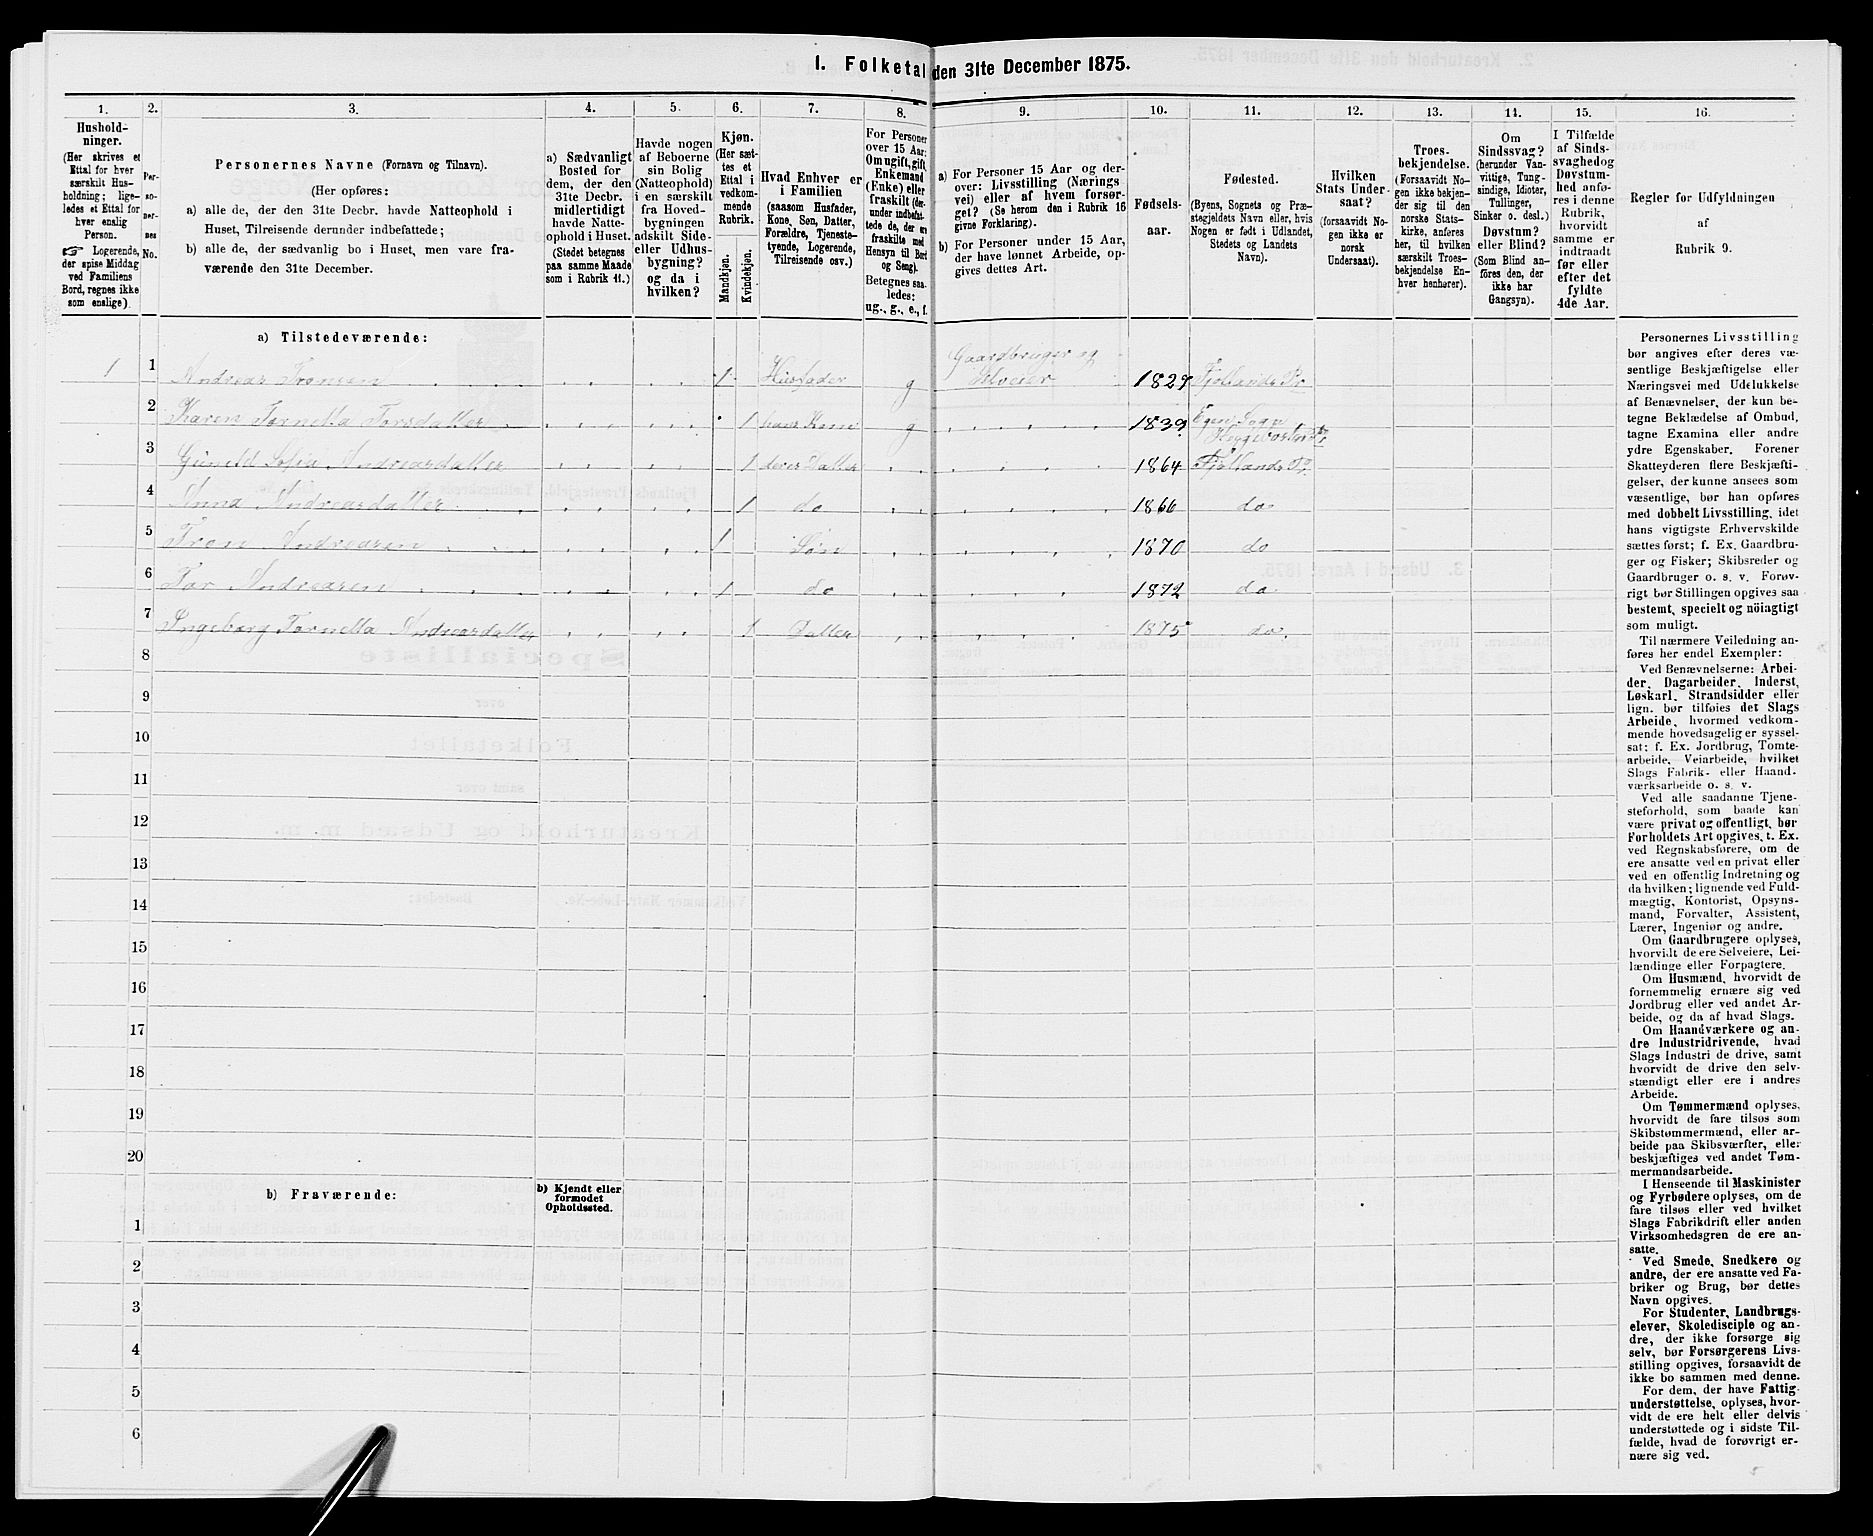 I. Folketal den 31te December 1875.
1. 2. 3. 4. 5. 6. 7. 8. 9. 10. 11. 12. 13. 14. 15. 16.
Hushold-
ninger.
(Her skrives et
Ettal for hver
særskilt Hus-
holdning; lige-
ledes et Ettal for
hver enslig
Person.
☞ Logerende,
der spise Middag
ved Familiens
Bord, regnes ikke
som enslige).
Per-
so-
ner-
nes
No.
Personernes Navne (Fornavn og Tilnavn).
(Her opføres:
a) alle de, der den 31te Decbr. havde Natteophold i
Huset, Tilreisende derunder indbefattede;
b) alle de, der sædvanlig bo i Huset, men vare fra-
værende den 31te December.
a) Sædvanligt
Bosted for
dem, der den
31te Decbr.
midlertidigt
havde Natte-
ophold i Huset.
(Stedet betegnes
paa samme Maade
som i Rubrik 11.)
Havde nogen
af Beboerne
sin Bolig
(Natteophold)
i en særskilt
fra Hoved-
bygningen
adskilt Side-
eller Udhus-
bygning?
og da i
hvilken?
Kjøn.
(Her sæt-
tes et
Ettal i
vedkom-
mende
Rubrik.
Mandkjøn.
Kvindekjøn.
Hvad Enhver er
i Familien
(saasom Husfader,
Kone, Søn, Datter,
Forældre, Tjeneste-
tyende, Logerende,
Tilreisende osv.)
For Personer
over 15 Aar:
Om ugift, gift,
Enkemand
(Enke) eller
fraskilt (der-
under indbefat-
tede de, der ere
fraskilte med
Hensyn til Bord
og Seng).
Betegnes saa-
ledes:
ug., g., e., f.
a) For Personer 15 Aar og der-
over: Livsstilling (Nærings-
vei) eller af hvem forsør-
get? (Se herom den i Rubrik 16
givne Forklaring).
b) For Personer under 15 Aar,
der have lønnet Arbeide, op-
gives dettes Art.
Fødsels-
aar.
Fødested.
(Byens, Sognets og Præ-
stegjeldets Navn eller, hvis
Nogen er født i Udlandet,
Stedets og Landets
Navn).
Hvilken
Stats Under-
saat?
(forsaavidt No-
gen ikke er
norsk
Undersaat).
Troes-
bekjendelse.
(Forsaavidt No-
gen ikke bekjen-
der sig til den
norske Stats-
kirke, anføres
her, til hvilken
særskilt Troes-
bekjendelse En-
hver henhører).
Om
Sindssvag?
(herunder Van-
vittige, Tung-
sindige, Idioter,
Tullinger,
Sinker o. desl.)
Døvstum?
eller Blind?
(Som Blind an-
føres den, der
ikke har
Gangsyn).
I Tilfælde
af Sinds-
svaghed og
Døvstum-
hed anfø-
res i denne
Rubrik,
hvorvidt
samme er
indtraadt
før eller
efter det
fyldte
4de Aar.
Regler for Udfyldningen
af
Rubrik 9.
a) Tilstedeværende:
1 1 Andreas Tronsen 1 Husfader g Gaardbruger og Selveier 1829 Fjotlands Pr
2 Karen Tornella Torsdatter 1 hans Kone g 1839 Egen Sogn
3 Gunild Sofia Andreasdatter 1 deres Datter 1864 Fjotlands Pr
4 Anna Andreasdatter 1 do 1866 do
5 Tron Andreasen 1 Søn 1870 do
6 Tor Andreasen 1 do 1872 do
7 Ingeborg Tornella Andreasdatter 1 Datter 1875 do.
8
9
10
11
12
13
14
15
16
17
18
19
20
b) Fraværende:
b) Kjendt eller
formodet
Opholdssted.
1
2
3
4
5
6
Personernes Livsstilling
bør angives efter deres væ-
sentlige Beskjæftigelse eller
Næringsvei med Udelukkelse
af Benævnelser, der kun be-
tegne Beklædelse af Ombud,
tagne Examina eller andre
ydre Egenskaber. Forener
Skatteyderen flere Beskjæfti-
gelser, der kunne ansees som
væsentlige, bør han opføres
med dobbelt Livsstilling, idet
hans vigtigste Erhvervskilde
sættes først; f. Ex. Gaardbru-
ger og Fisker; Skibsreder og
Gaardbruger o. s. v. Forøv-
rigt bør Stillingen opgives saa
bestemt, specielt og nöiagtigt
som muligt.
Til nærmere Veiledning an-
føres her endel Exempler:
Ved Benævnelserne: Arbei-
der, Dagarbeider, Inderst,
Løskarl, Strandsidder eller
lign. bør tilføies det Slags
Arbeide, hvormed vedkom-
mende hovedsagelig er syssel-
sat; f. Ex. Jordbrug, Tomte-
arbeide, Veiarbeide, hvilket
Slags Fabrik- eller Haand-
værksarbeide o. s. v.
Ved alle saadanne Tjene-
steforhold, som baade kan
være privat og offentligt, bør
Forholdets Art opgives, t. Ex.
ved Regnskabsførere, om de
ere ansatte ved en privat eller
ved en offentlig Indretning og
da hvilken; lignende ved Fuld-
mægtig, Kontorist, Opsyns-
mand, Forvalter, Assistent,
Lærer, Ingeniør og andre.
Om Gaardbrugere oplyses,
hvorvidt de ere Selveiere, Lei-
lændinge eller Forpagtere.
Om Husmænd, hvorvidt de
fornemmelig ernære sig ved
Jordbrug eller ved andet Ar-
beide, og da af hvad Slags.
Om Haandværkere og an-
dre Industridrivende, hvad
Slags Industri de drive, samt
hvorvidt de drive den selv-
stændigt eller ere i andres
Arbeide.
Om Tømmermænd oplyses,
hvorvidt de fare tilsøs som
Skibstømmermænd, eller ar-
beide paa Skibsværfter, eller
beskjæftiges ved andet Tøm-
mermandsarbeide.
I Henseende til Maskinister
og Fyrbødere oplyses, om de
fare tilsøs eller ved hvilket
Slags Fabrikdrift eller anden
Virksomhedsgren de ere an-
satte.
Ved Smede, Snedkere og
andre, der ere ansatte ved Fa-
briker og Brug, bør dettes
Navn opgives.
For Studenter, Landbrugs-
elever, Skoledisciple og an-
dre, der ikke forsørge sig
selv, bør Forsørgerens Livs-
stilling opgives, forsaavidt de
ikke bo sammen med denne.
For dem, der have Fattig-
understøttelse, oplyses, hvor-
vidt de ere helt eller delvis
understøttede og i sidste Til-
fælde, hvad de forøvrigt er-
nære sig ved.